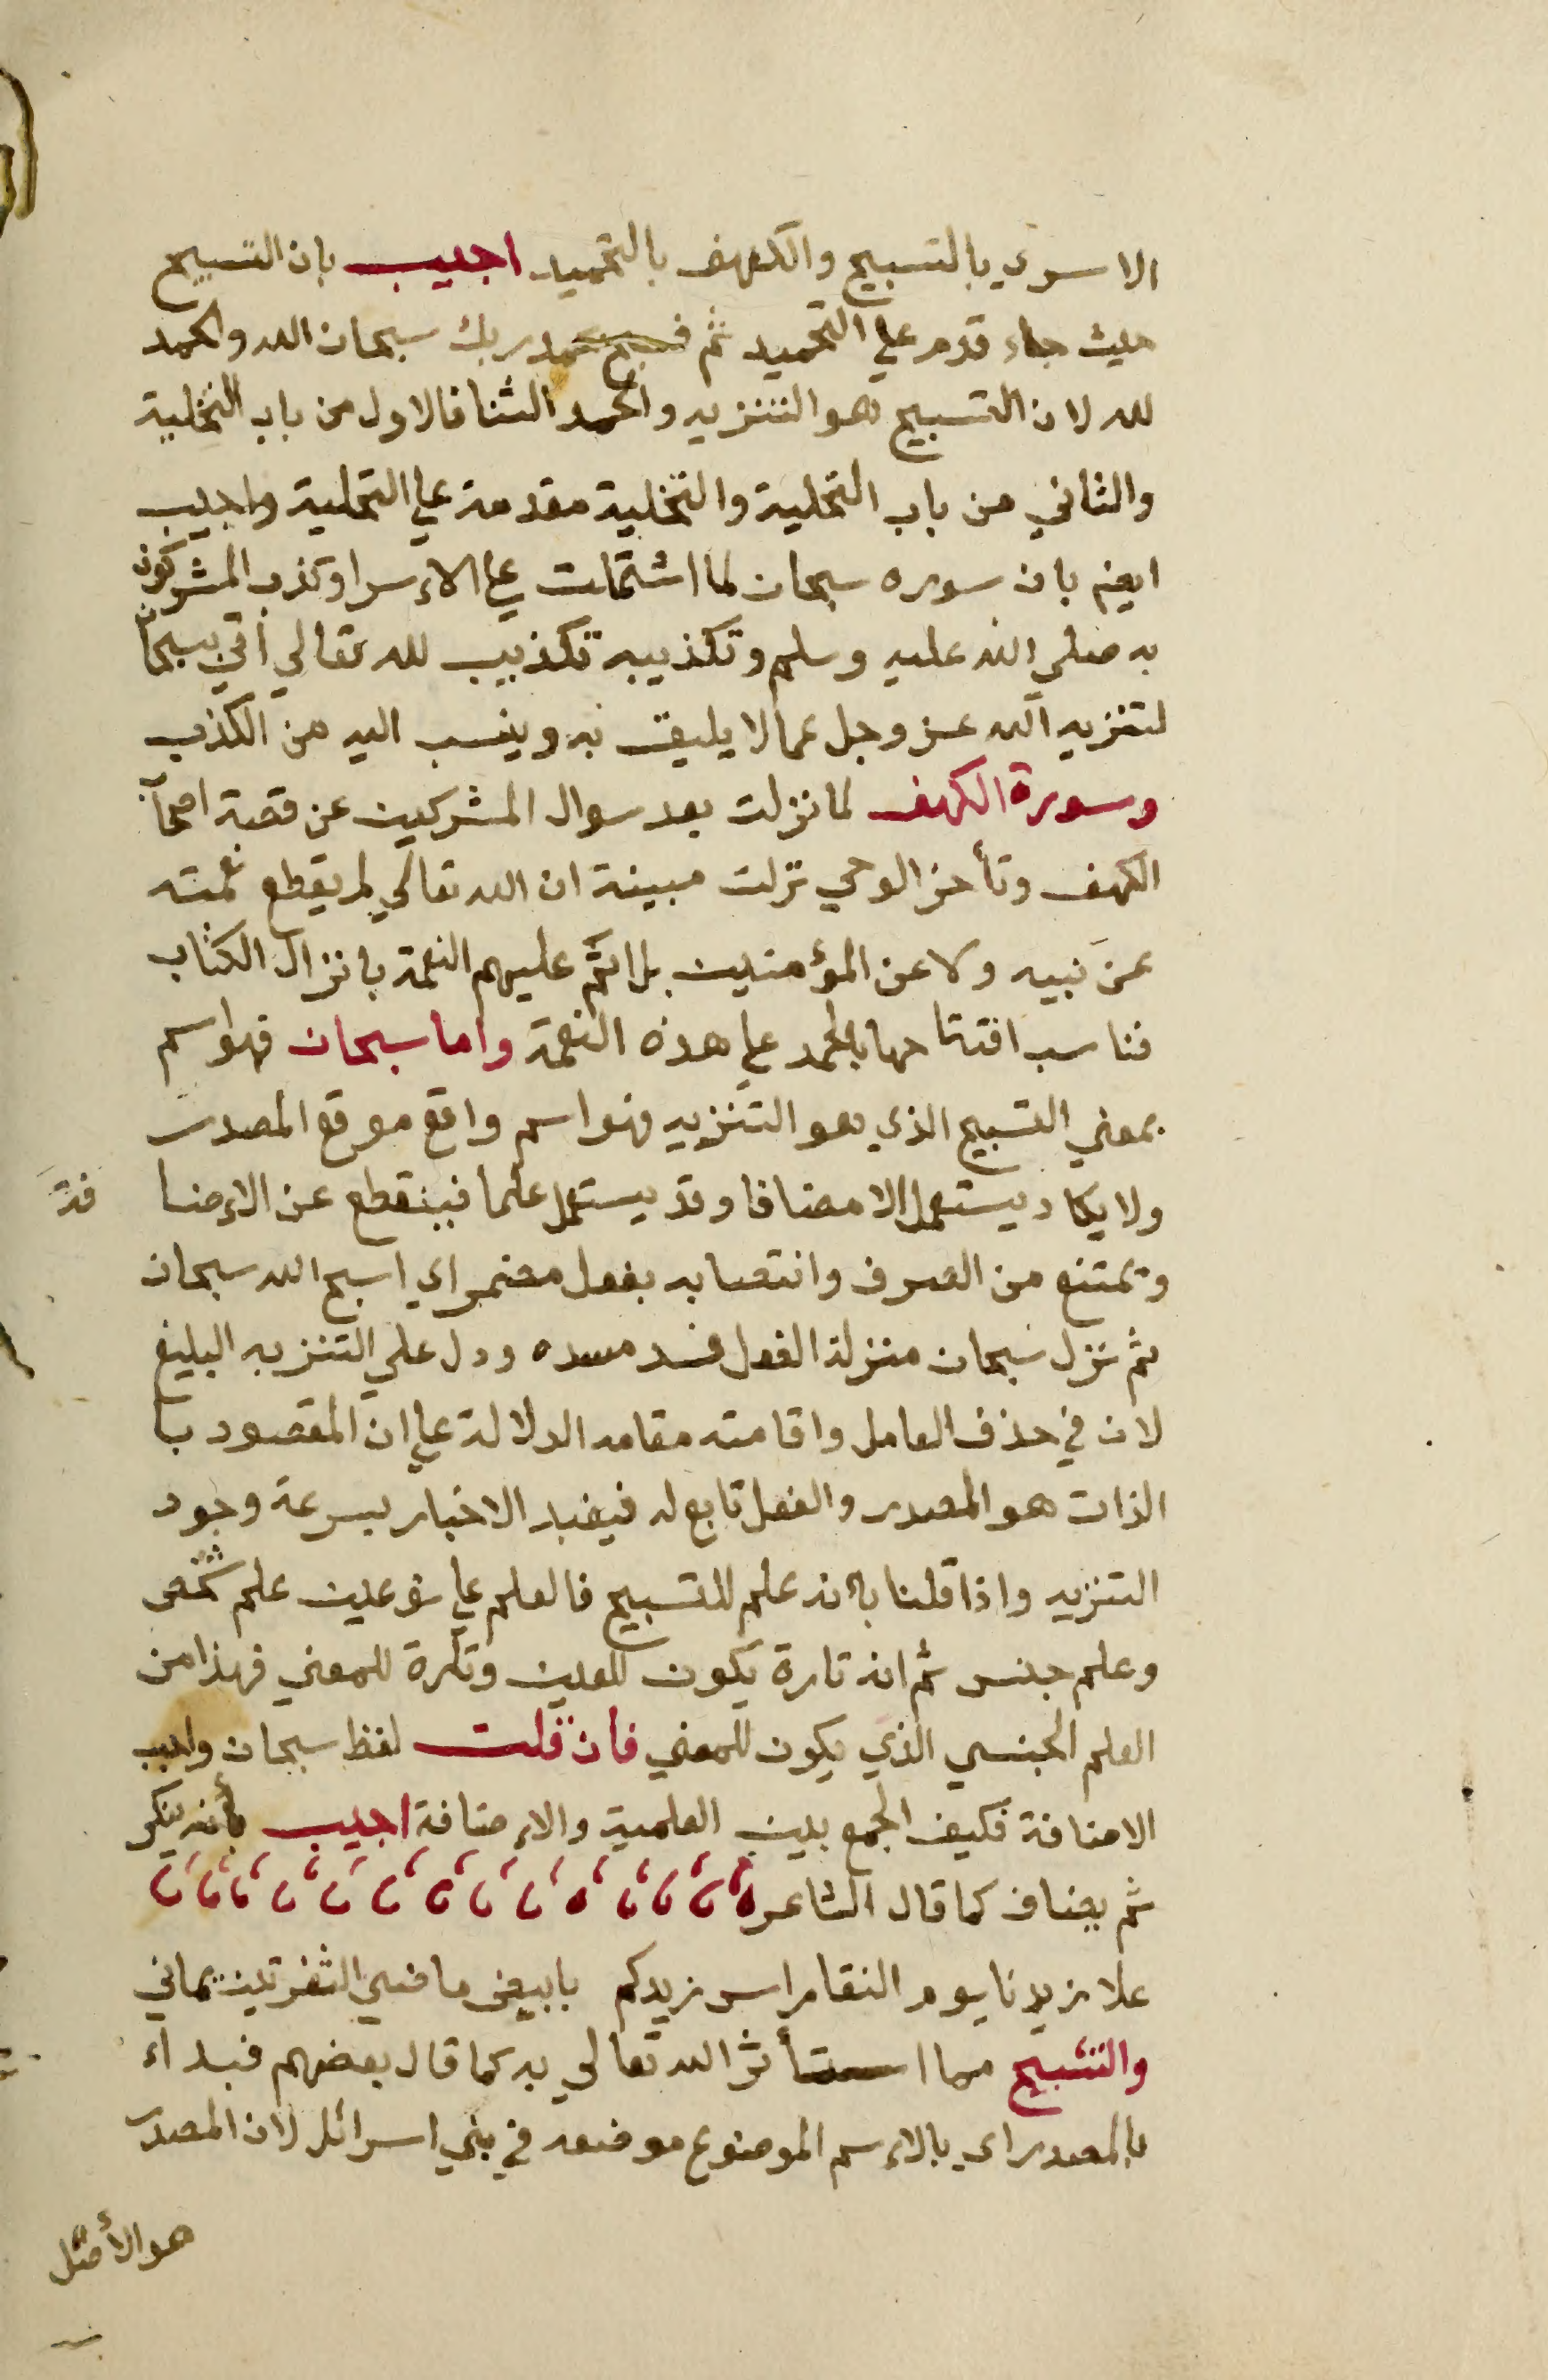 الاسري بالتسبيح والكهف بالتحميد اجيب بان التسبيح
حيث جاء قدم علي التحميد ثم فسبح بحمد ربك سبحان الله والحمد
لله لان التسبيح هو التنزيه والحمد الثنا فالاول من باب التخلية
والثاني من باب التحلية والتخلية مقدمة علي التحلية واجيب
ايضم بان سوره سبحان لما اشتملت علي الاءسرا وكذب المشركون
به صلي الله عليه وسلم وتكذيبه تكذيب لله تعالي أتي بسبحان
لتنزيه الله عز وجل عما لا يليق به وينسب اليه من الكذب
وسورة الكهف لما نزلت بعد سوال المشركين عن قصة اصحاب
الكهف وتأخر الوحي نزلت مبينة ان الله تعالي لم يقطع نعمته
عن نبيه ولا عن المؤمنين بل اتم عليهم النعمة بانزال الكتاب
فناسب افتتاحها بالحمد علي هذه النعمة واما سبحان فهو اسم
بمعني التسبيح الذي هو التنزيه فهو اسم واقع موقع المصدر
ولا يكاد يستعمل الا مضافا وقد يستعمل علما فينقطع عن الاءضا فة
ويمتنع من الصرف وانتصابه بفعل مضمر اي اسبح الله سبحان
ثم نزل سبحان منزلة الفعل فسد مسده ودل علي التنزيه البليغ
لان في حذف العامل واقامته مقامه الدلالة علي ان المقصود با
الذات هو المصدر والفعل تابع له فيفيد الاخبار بسرعة وجود
التنزيه واذا قلنا بانه علم للتسبيح فالعلم علي نوعين علم شخص
وعلم جنس ثم انه تارة يكون للعين وتارة للمعني فهذا من
العلم الجنسي الذي يكون للمعني فان قلت لفظ سبحان واجب
الاضافة فكيف الجمع بين العلمية والاءضافة اجيب بأنه ينكر
ثم يضاف كما قال الشاعر
علا زيدنا يوم النقا راس زيدكم بابيض ماضي الشفرتين يماني
والتسبيح مما استأثر الله تعالي به كما قال بعضهم فبداء
بالمصدر اي بالاءسم الموضوع موضعه في بني اسرائل لان المصدر
هو الأصل